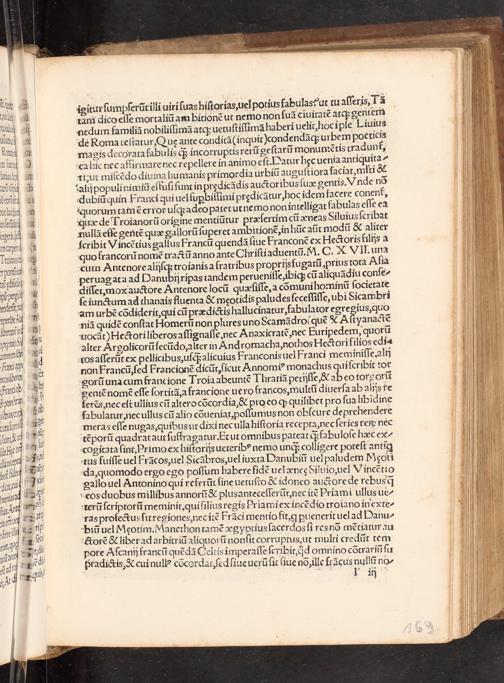 igitur sumpserūt illi uiri suas historias, uel potius fabulas? ut tu asseris, Tā
tam dico esse mortaliū ambitionē ut nemo non suā ciuitatē atq; gentem
nedum familiā nobilissimā atq; uetustissimā haberi uelit, hoc ipse Liuius
de Roma testatur, Quę ante conditā (inquit) kondendāq; urbem poeticis
magis decorata fabulis q̄ incorruptis rerū gestarū monumentis tradunt,
ea hic nec affirmare nec repellere in animo est. Datur hęc uenia antiquita-
ti: ut miscēdo diuina humanis primordia urbiū augustiora faciat, msti &
alij populi nimiū effusi sunt in prędicādis auctoribus suæ gentis. Vnde nō
dubiū quin Franci qui uel suprissimi prędicātur, hoc idem facere conent,
quorum tamē error usq; adeo patet ut nemo non intelligat fabulas esse ea
quæ de Troianorū origine mentiūtur præsertim cū æneas Siluius scribat
nullā esse gentē quæ gallorū superet ambitionē, in hūc aūt modū & aliter
scribit Vincētius gallus Francū quendā siue Franconē ex Hectoris filijs a
quo francorū nomē tractū anno ante Christi aduentū. M. C. X VII. una
cum Antenore alijsq; troianis a fratribus proprijs fugatū, prius tota Asia
peragrata ad Danubij ripas tandem peruenisse, ibiq; cū aliquādiu conse-
disset, mox auctore Antenore locū quæsisse, a cōmuni hominū societate
se iunctum ad thanais fluenta & męotidis paludes secessisse, ubi Sicambri
am urbē cōdiderit, qui cū prædictis hallucinatur, fabulator egregius, quo
niā quidē constat Homerū non plures uno Scamādro (quē & Astyanactē
uocat) Hectori liberos assignasse, nec Anaxicratē, nec Euripedem, quorū
alter Argolicorū secūdo, alter in Andromacha, nothos Hectori filios edi-
tos asserūt ex pellicibus, usq̄ alicuius Franconis uel Franci meminisse, alij
non Francū, sed Francionē dicūt, sicut Annomi9 monachus qui scribit tor
gorū una cum francione Troia abeuntē Thratiā petijsse, & ab eo torgorū
gentē nomē esse sortitā, a francione uero francos, multū diuersa ab alijs re
ferēs, nec est ullius cū altero cōcordia, & pro eo q̄ quilibet pro sua libidine
fabulatur, nec ullus cū alio cōueniat, possumus non obscure deprehendere
meras esse nugas, quibus ut dixi nec ulla historia recepta, nec series rerū nec
tēporū quadrat aut suffragatur. Et ut omnibus pateat q̄ fabulose hæc ex-
cogitata sint, Primo ex historijs ueteribus nemo unq̄ colligere potest antiq
tus fuisse uel Frācos, uel Sicābros, uel iuxta Danubiū uel paludem Męoti
da, quomodo ergo ego possum habere fidē uel æneę Siluio, uel Vincētio
gallo uel Antonino qui referūt sine uetusto & idoneo auctore de rebus q
eos duobus millibus annorū & plus antecesserūt, nec itē Priami ullus ue-
terū scriptorū meminit, qui filius regis Priami ex incēdio troiano in exte-
ras profectus sit regiones, nec itē Frāci mentio sit, q puenerit uel ad Danu-
biū uel Męotim. Manethon tamē ægyptius sacerdos si res nō mētiatur au
ctorē & liber ad arbitriū aliquorū non sit corruptus, ut multi credūt tem
pore Ascanij francū quēdā Celtis imperasse scribit, qd omnino cōtrariū sit
prædictis, & cui null9 cōcordat, sed siue uerū sit siue nō, ille frācus nullū no-
I iij
169